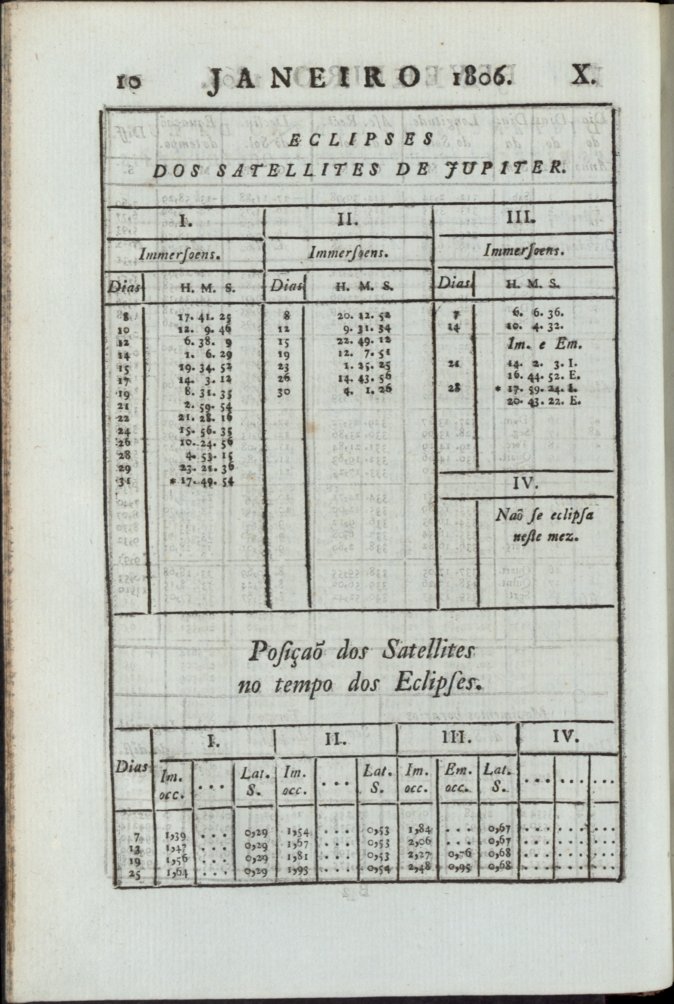 10 JANEIRO 1806. X.
ECLIPSES
DOS SATELLITES DE JUPITER.
I. II. III.
Immerſoens. Immerſoens. Immerſoens.
Dias H. M. S. Dias H. M. S. Dias H. M. S.
8 17. 41. 25 8 20. 12. 52 7 6. 6. 36.
10 12. 9. 46 12 9. 31. 34 14 10. 4. 32.
12 6. 38. 9 15 22. 49. 12 Im. e Em.
14 1. 6. 29 19 12. 7. 51
15 19. 34. 52 23 1. 25. 25 21 14. 2. 3. I.
17 14. 3. 12 26 14. 43. 56 16. 44. 52. E.
19 8. 31. 35 30 4. 1. 26 28 * 17. 59. 24. I.
21 2. 59. 54 20. 43. 22. E.
22 21. 28. 16
24 15. 56. 35
26 10. 24. 56
28 4. 53. 15
29 23. 21. 36
31 * 17. 49. 54
IV.
Naõ ſe eclipſa
neſte mez.
Poſiçaõ dos Satellites
no tempo dos Eclipſes.
I. II. III. IV.
Dias Im. ... Lat. Im. ... Lat. Im. Em. Lat. ... ... ...
occ. S. occ. S. occ. occ. S.
7 1,39 ... 0,29 1,54 ... 0,53 1,84 ... 0,67 ... ... ...
13 1,47 ... 0,29 1,67 ... 0,53 2,06 ... 0,67 ... ... ...
19 1,56 ... 0,29 1,81 ... 0,53 2,27 0,76 0,68 ... ... ...
25 1,64 ... 0,29 1,95 ... 0,54 2,48 0,95 0,68 ... ... ...